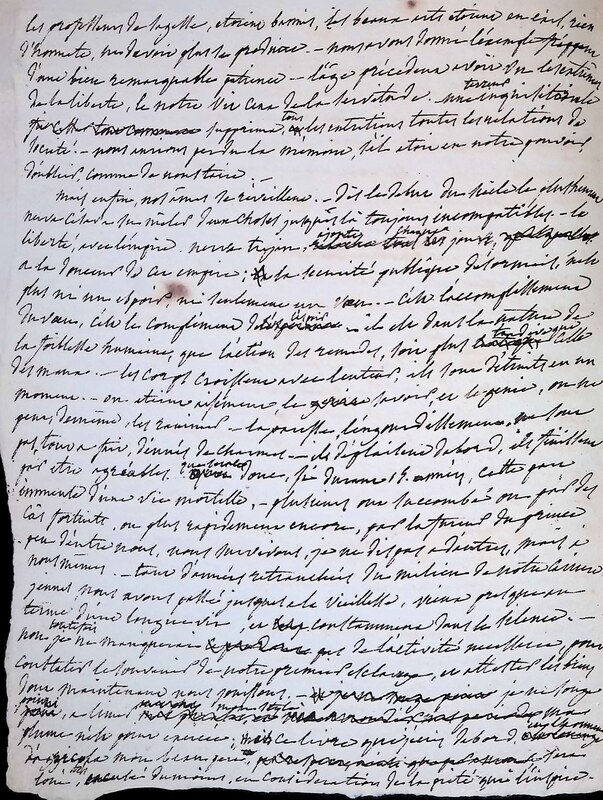 les professeurs de sagesse, etoient bannis, les beaux arts etoient en exil, rien
d'honnete, ne devoit plus se produire. - nous avons donné l'exemple
d'une bien remarquable patience - l'âge précédent avoit vu les extrêmes
de la liberté, le notre vit ceux de la servitude. - une inquisition
supprima tous les entretiens toutes les relations de
société. - nous aurions perdu la mémoire, s'il etoit en notre pouvoir
d'oublier, comme de nous taire. -
mais enfin, nos ames se réveillent. - dès le début du siècle le plus heureux
nerva césar a su mêler deux choses jusques là toujours incompatibles. - la
liberté, avec l'empire. nerva trajan, ajoute chaque jour,
a la douceur de cet empire; la sécurité publique désormais, n'est
plus ni un espoir, ni seulement un voeu. - c'est l'accomplissement
du voeu, c'est le complément de l'espoir - il est dans la nature de
la foiblesse humaine, que l'action des remedes, soit plus tardive que celle
des maux. - les corps croissent avec lenteur, ils sont détruits en un
moment. - on eteint aisément, le savoir, et le génie, on ne
peut de même, les ranimer - la paresse, l'engourdissement, ne sont
pas, tout a fait, dénués de charmes - ils déplaisent d'abord, ils finissent
par etre agréables. donc, si durant 15 années, cette part
immense d'une vie mortelle, - plusieurs ont succombé ou par des
cas fortuits, ou plus rapidement encore, par la fureur du prince
peu d'entre nous, nous survivons, je ne dis pas a d'autres, mais à
nous mêmes. - tant d'années retranchées du milieu de notre carrière
jeunes nous avons passé jusques a la vieillesse, vieux presque au
terme d'une longue vie, et constamment dans le silence. -
non je ne manquerai pas de l'activité necessaire, pour
constater le souvenir de notre premier esclavage, et attester les biens
dont maintenant nous jouissons. - je ne songe
a limer mon style ma
plume n'est pour exercée; ce livre que j'écris d'abord
d'agricola mon beau père, sera
loué, excusé du moins, en considération de la piété qui l'inspire -